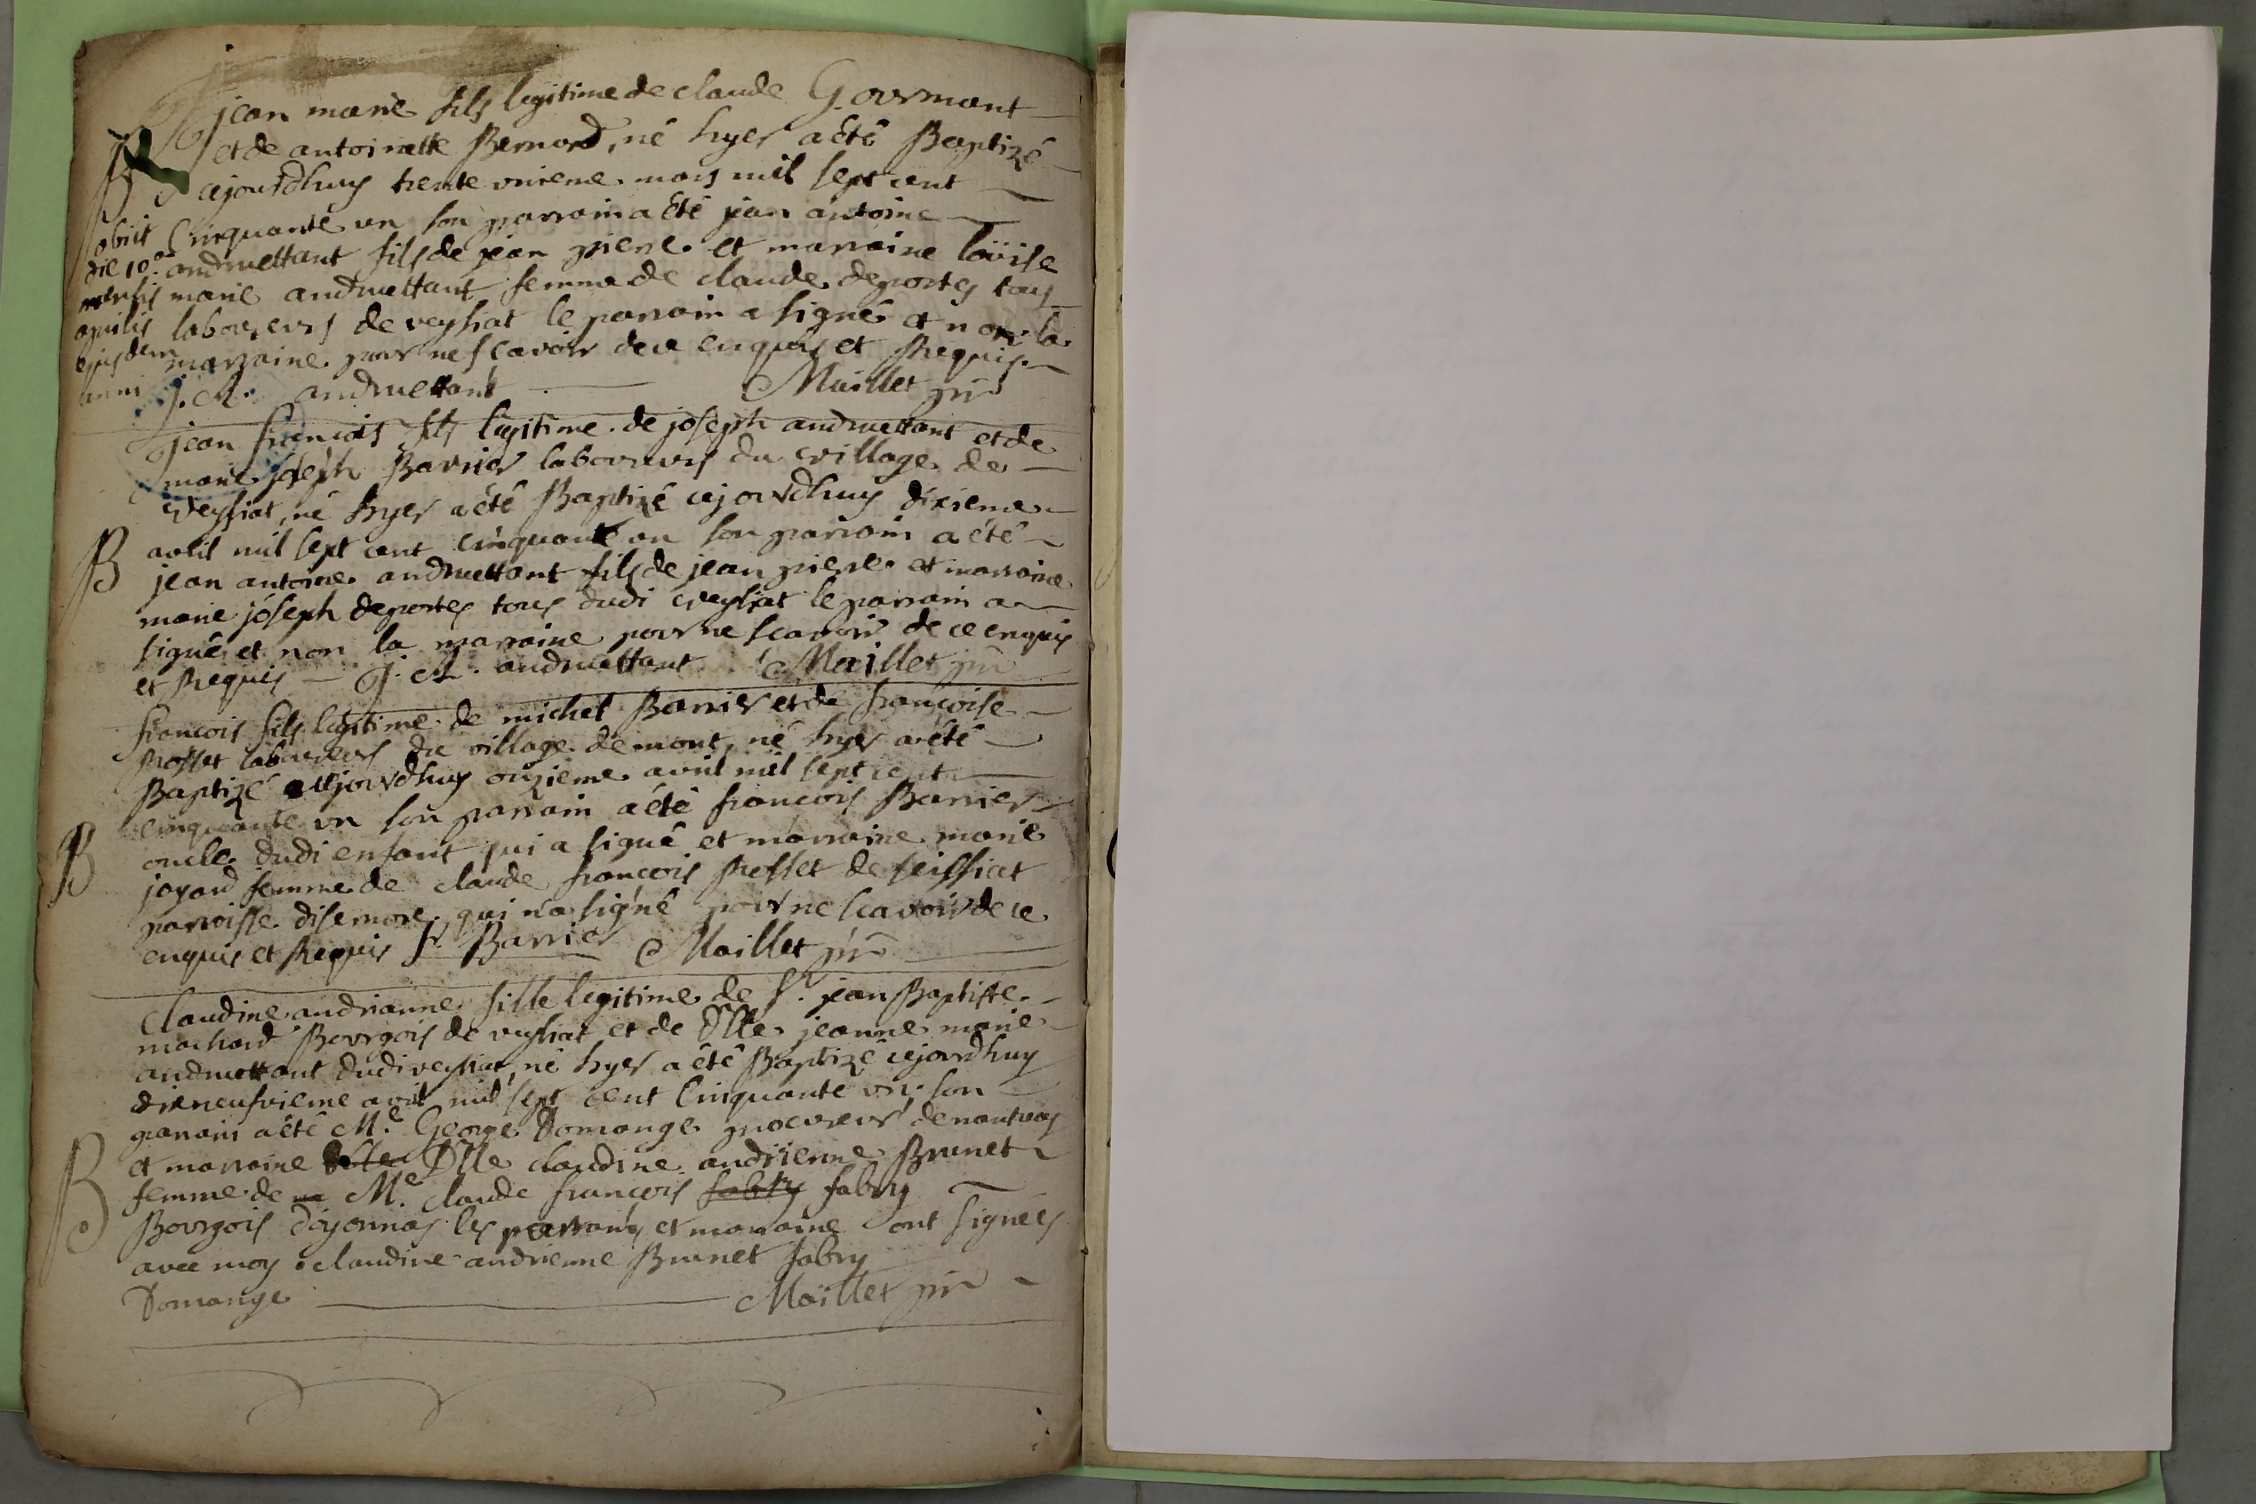 jean marie fils legitime de claude Gourmant
et de antoinette Bernard, né hyer a été Baptizé
B cejourdhuy trente unieme mars mil sept cent
Cinquante un son parrain a été jean antoine
andruettant fils de jean pierre et marraine loüise
marie andruettant femme de claude deportes tous
laboureurs de veysiat le parrain a signé et non la
marraine pour ne scavoir de ce enquis et Requis
J. A. andruettant Maillet prr̃
obiit
die 10ª
mensis
aprilis
ejusdem
anni
jean francois fils legitime de joseph andruettant et de
marie joseph Barrier laboureurs du village de
Veysiat, né hyer a été Baptizé cejourdhuy dixieme
B avril mil sept cent cinquante un son parrain a été
jean antoine andruettant fils de jean pierre et marraine
marie joseph deportes tous dudi veysiat le parrain a
signé et non la marraine pour ne scavoir de ce enquis
et Requis J. A. andruettant Maillet prr̃
francois fils legitime de michel Barrier et de françoise
Rosset laboureurs du village de mont, né hyer a été
Baptizé cejourdhuy onzieme avril mil sept cent
cinquante un son parrain a été françois Barrier
B oncle dudi enfant qui a signé et marraine marie
joyard femme de claude françois Rosset de seissiat
parroisse disernore qui n'a signé pour ne scavoir de ce
enquis et Requis fr. Barrier Maillet prr̃
Claudine andrianne fille legitime de Sr. jean Baptiste
mochard Bourgois de veysiat et de Dlle jeanne marie
andruettant dudi veysiat, né hyer a été Baptizé cejourdhuy
dixneufvieme avril mil sept cent Cinquante un, son
parrain a été Me. George Domange procureur de nantuas
B et marraine Dlle claudine andrienne Brunet
femme de Me. claude françois fabry fabry
Bourgois d'oyonnas les parrains et marraine ont signées
avec moy. claudine andrienne Brunet fabry
Domange Maillet prr̃